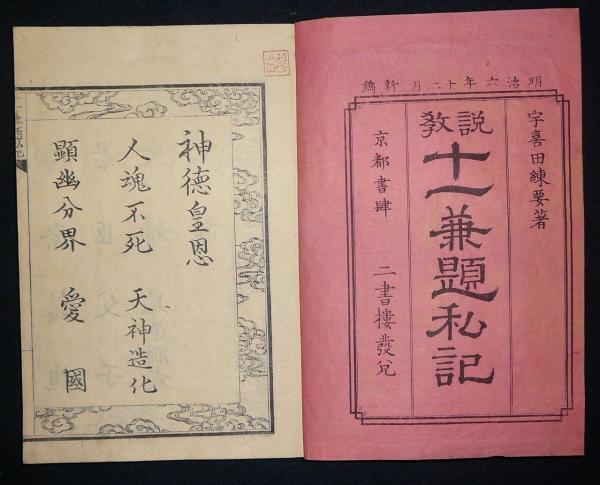 明治六年十二月新鐫
宇喜田練要著
説教
十一兼題私記
京都書肆 二書樓發兌
神德皇恩
人魂不死 天神造化
顯幽分界 愛國
十一兼題私記